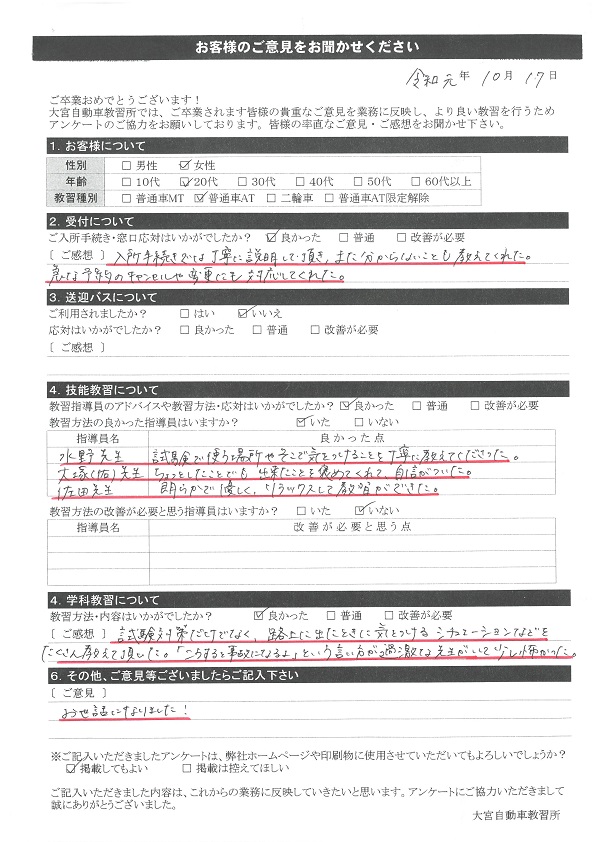 お客様のご意見をお聞かせください
令和元年 10月 17日
ご卒業おめでとうございます！
大宮自動車教習所では、ご卒業されます皆様の貴重なご意見を業務に反映し、より良い教習を行うため
アンケートのご協力をお願いしております。皆様の率直なご意見・ご感想をお聞かせ下さい。
1. お客様について
性別 □ 男性 ☑ 女性
年齢 □ 10代 ☑ 20代 □ 30代 □ 40代 □ 50代 □ 60代以上
教習種別 □ 普通車MT ☑ 普通車AT □ 二輪車 □ 普通車AT限定解除
2. 受付について
ご入所手続き・窓口応対はいかがでしたか？ ☑ 良かった □ 普通 □ 改善が必要
〔 ご感想 〕 入所手続きでは丁寧に説明して頂き、また分からないことも教えてくれた。
急な予約のキャンセルや変更にも対応してくれた。
3. 送迎バスについて
ご利用されましたか？ □ はい ☑ いいえ
応対はいかがでしたか？ □ 良かった □ 普通 □ 改善が必要
〔 ご感想 〕
4. 技能教習について
教習指導員のアドバイスや教習方法・応対はいかがでしたか？ ☑ 良かった □ 普通 □ 改善が必要
教習方法の良かった指導員はいますか？ ☑ いた □ いない
指導員名 良かった点
水野先生 試験で使う場所やそこで気をつけることを丁寧に教えてくださった。
大塚(佑)先生 ちょっとしたことでも出来たことを褒めてくれて、自信がついた。
佐田先生 朗らかで優しく、リラックスして教習ができた。
教習方法の改善が必要と思う指導員はいますか？ □ いた ☑ いない
指導員名 改善が必要と思う点
4. 学科教習について
教習方法・内容はいかがでしたか？ ☑ 良かった □ 普通 □ 改善が必要
〔 ご感想 〕 試験対策だけでなく、路上に出たときに気をつけるシチュエーションなどを
たくさん教えて頂した。「こうすると事故になるよ」という言い方が過激な先生がいて少し怖かった。
6. その他、ご意見等ございましたらご記入下さい
〔 ご意見 〕
お世話になりました！
※ご記入いただきましたアンケートは、弊社ホームページや印刷物に使用させていただいてもよろしいでしょうか？
☑ 掲載してもよい □ 掲載は控えてほしい
ご記入いただきました内容は、これからの業務に反映していきたいと思います。アンケートにご協力いただきまして
誠にありがとうございました。
大宮自動車教習所